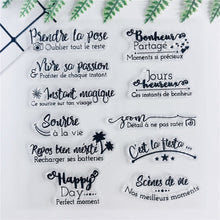 Prendre la pose
Oublier tout le reste
Vivre sa passion
& Profiter de chaque instant
Instant magique
Ce sourire sur ton visage
Sourire
à la vie
Repos bien mérité
Recharger ses batteries
Happy
Day
Perfect moment
Bonheur
Partagé
Moments si précieux
Jours
heureux
Ces instants de bonheur
zoom
Détail à ne pas rater
C'est la fiesta...
Scènes de vie
Nos meilleurs moments